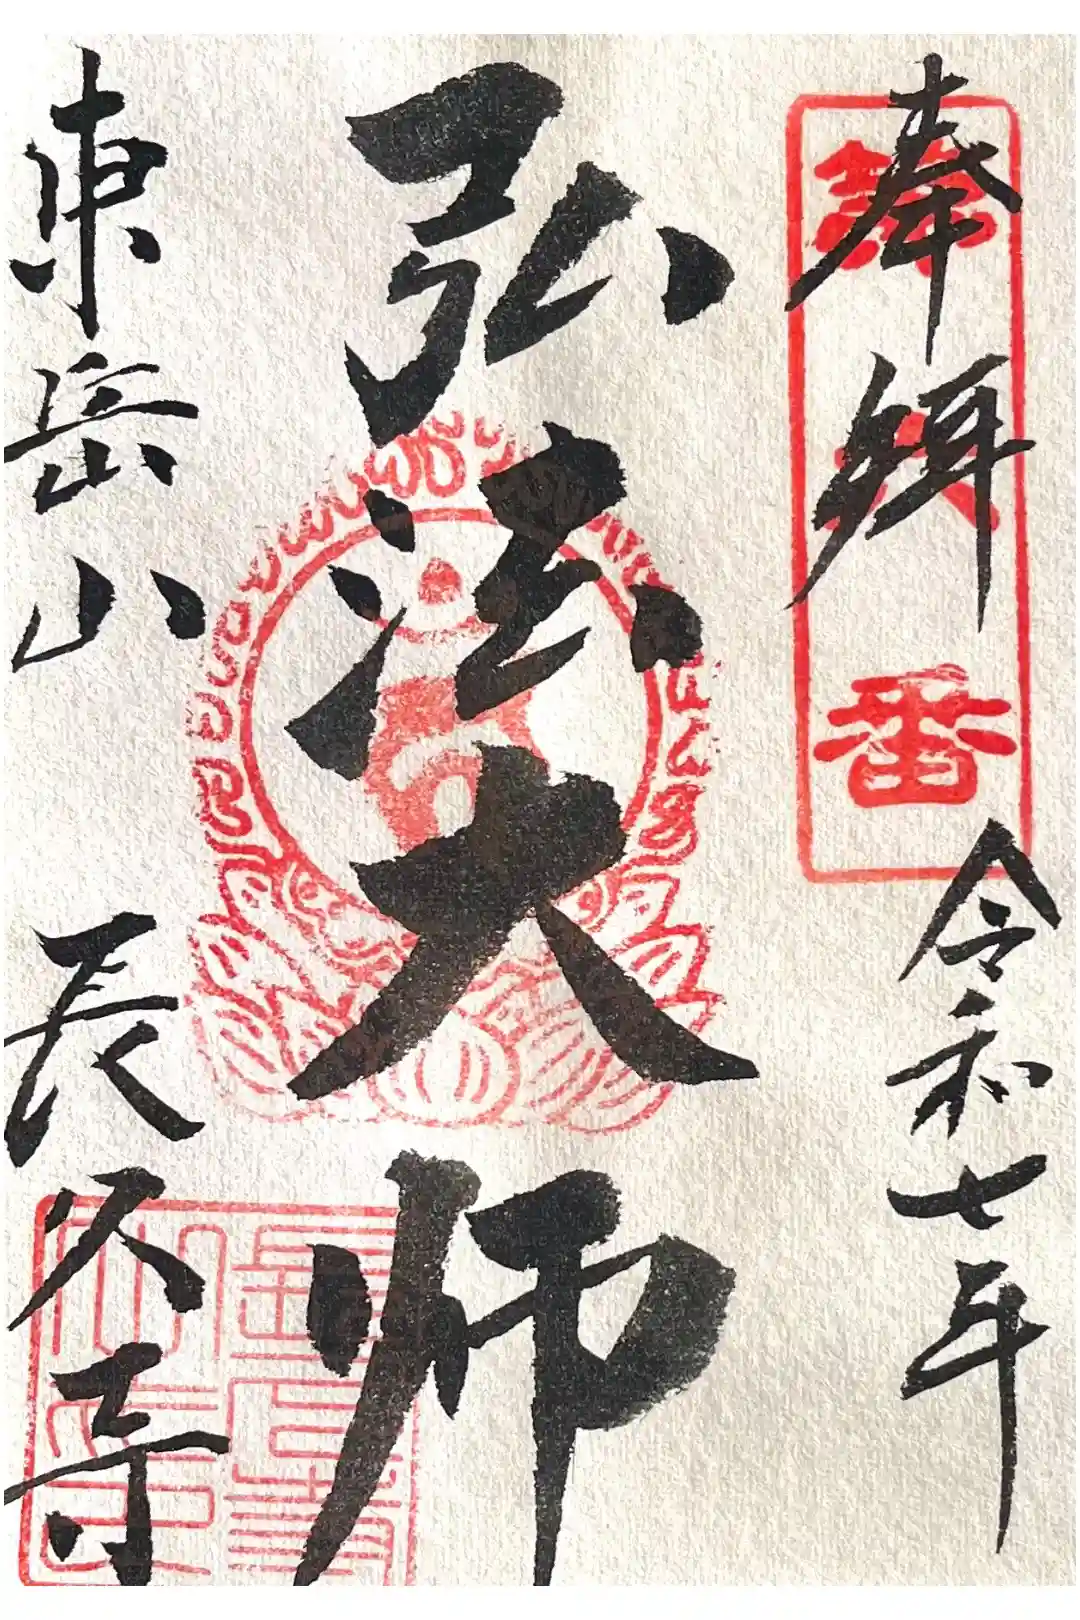 奉拝
第六番
令和七年
弘法大师
東岳山
長久寺